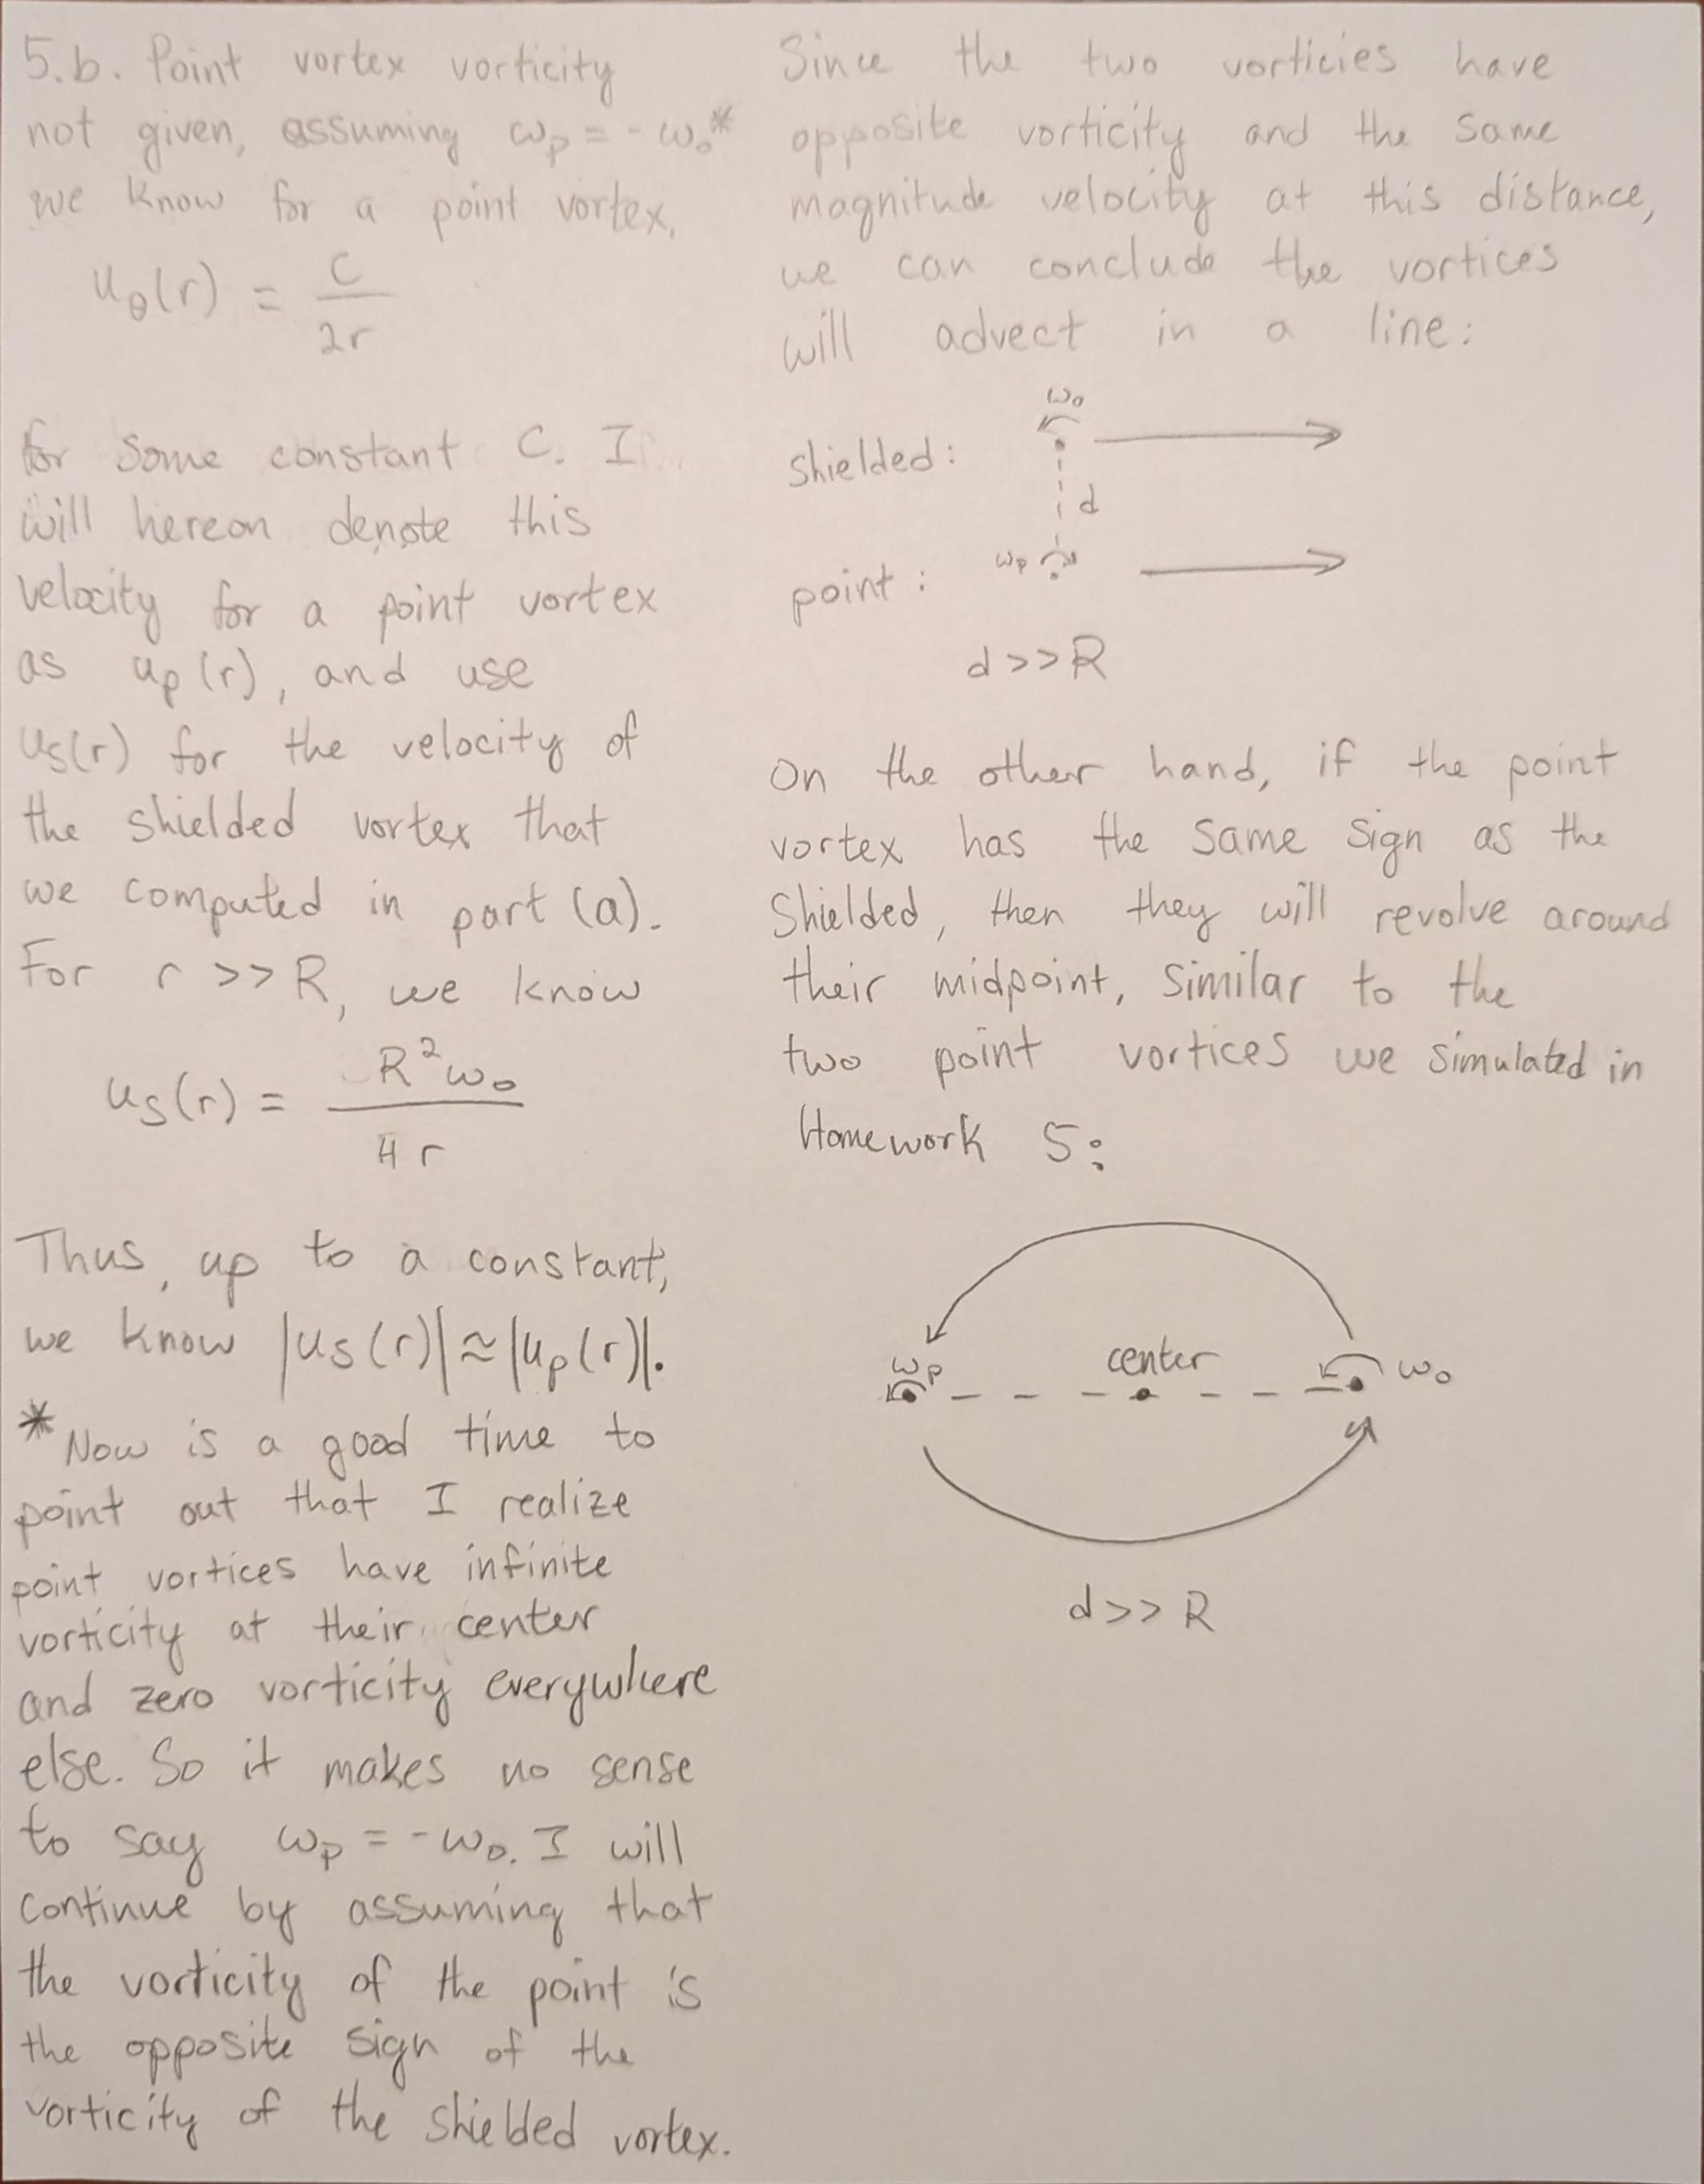 5.b. Point vortex vorticity
not given, assuming ωp = - ω₀*
we know for a point vortex,
uθ(r) = C / 2r
for some constant C. I
will hereon denote this
velocity for a point vortex
as up(r), and use
us(r) for the velocity of
the shielded vortex that
we computed in part (a).
For r >> R, we know
us(r) = R²ω₀ / 4r
Thus, up to a constant,
we know |us(r)| ≈ |up(r)|.
*Now is a good time to
point out that I realize
point vortices have infinite
vorticity at their center
and zero vorticity everywhere
else. So it makes no sense
to say ωp = -ω₀. I will
continue by assuming that
the vorticity of the point is
the opposite sign of the
vorticity of the shielded vortex.
Since the two vorticies have
opposite vorticity and the same
magnitude velocity at this distance,
we can conclude the vortices
will advect in a line:
ω₀
shielded:
d
ωp
point:
d >> R
On the other hand, if the point
vortex has the same sign as the
shielded, then they will revolve around
their midpoint, similar to the
two point vortices we simulated in
Homework 5:
ωp center ω₀
d >> R